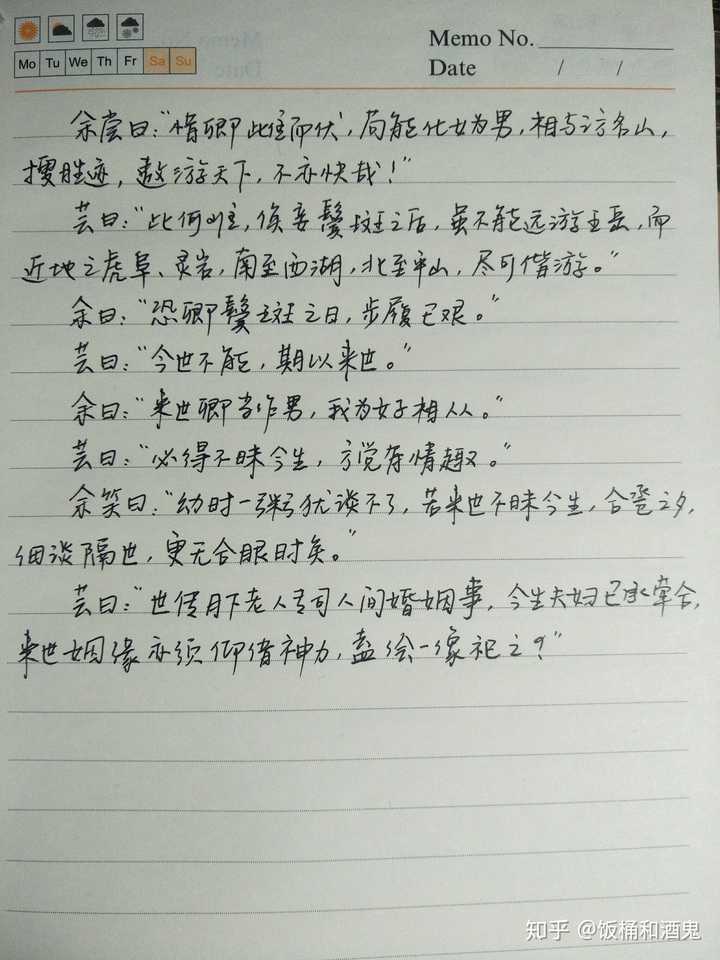 Memo No.
Mo Tu We Th Fr Sa Su
Date / /
余尝曰:“惜卿此雌而伏,苟能化女为男,相与访名山,
搜胜迹,遨游天下,不亦快哉!”
芸曰:“此何难,俟妾鬓斑之后,虽不能远游五岳,而
近地之虎阜、灵岩,南至西湖,北至平山,尽可偕游。”
余曰:“恐卿鬓斑之日,步履已艰。”
芸曰:“今世不能,期以来世。”
余曰:“来世卿当作男,我为女子相从。”
芸曰:“必得不昧今生,方觉有情趣。”
余笑曰:“幼时一粥犹谈不了,若来世不昧今生,合卺之夕,
细谈隔世,更无合眼时矣。”
芸曰:“世传月下老人专司人间婚姻事,今生夫妇已承牵合,
来世姻缘亦须仰借神力,盍绘一像祀之?”
知乎 @饭桶和酒鬼